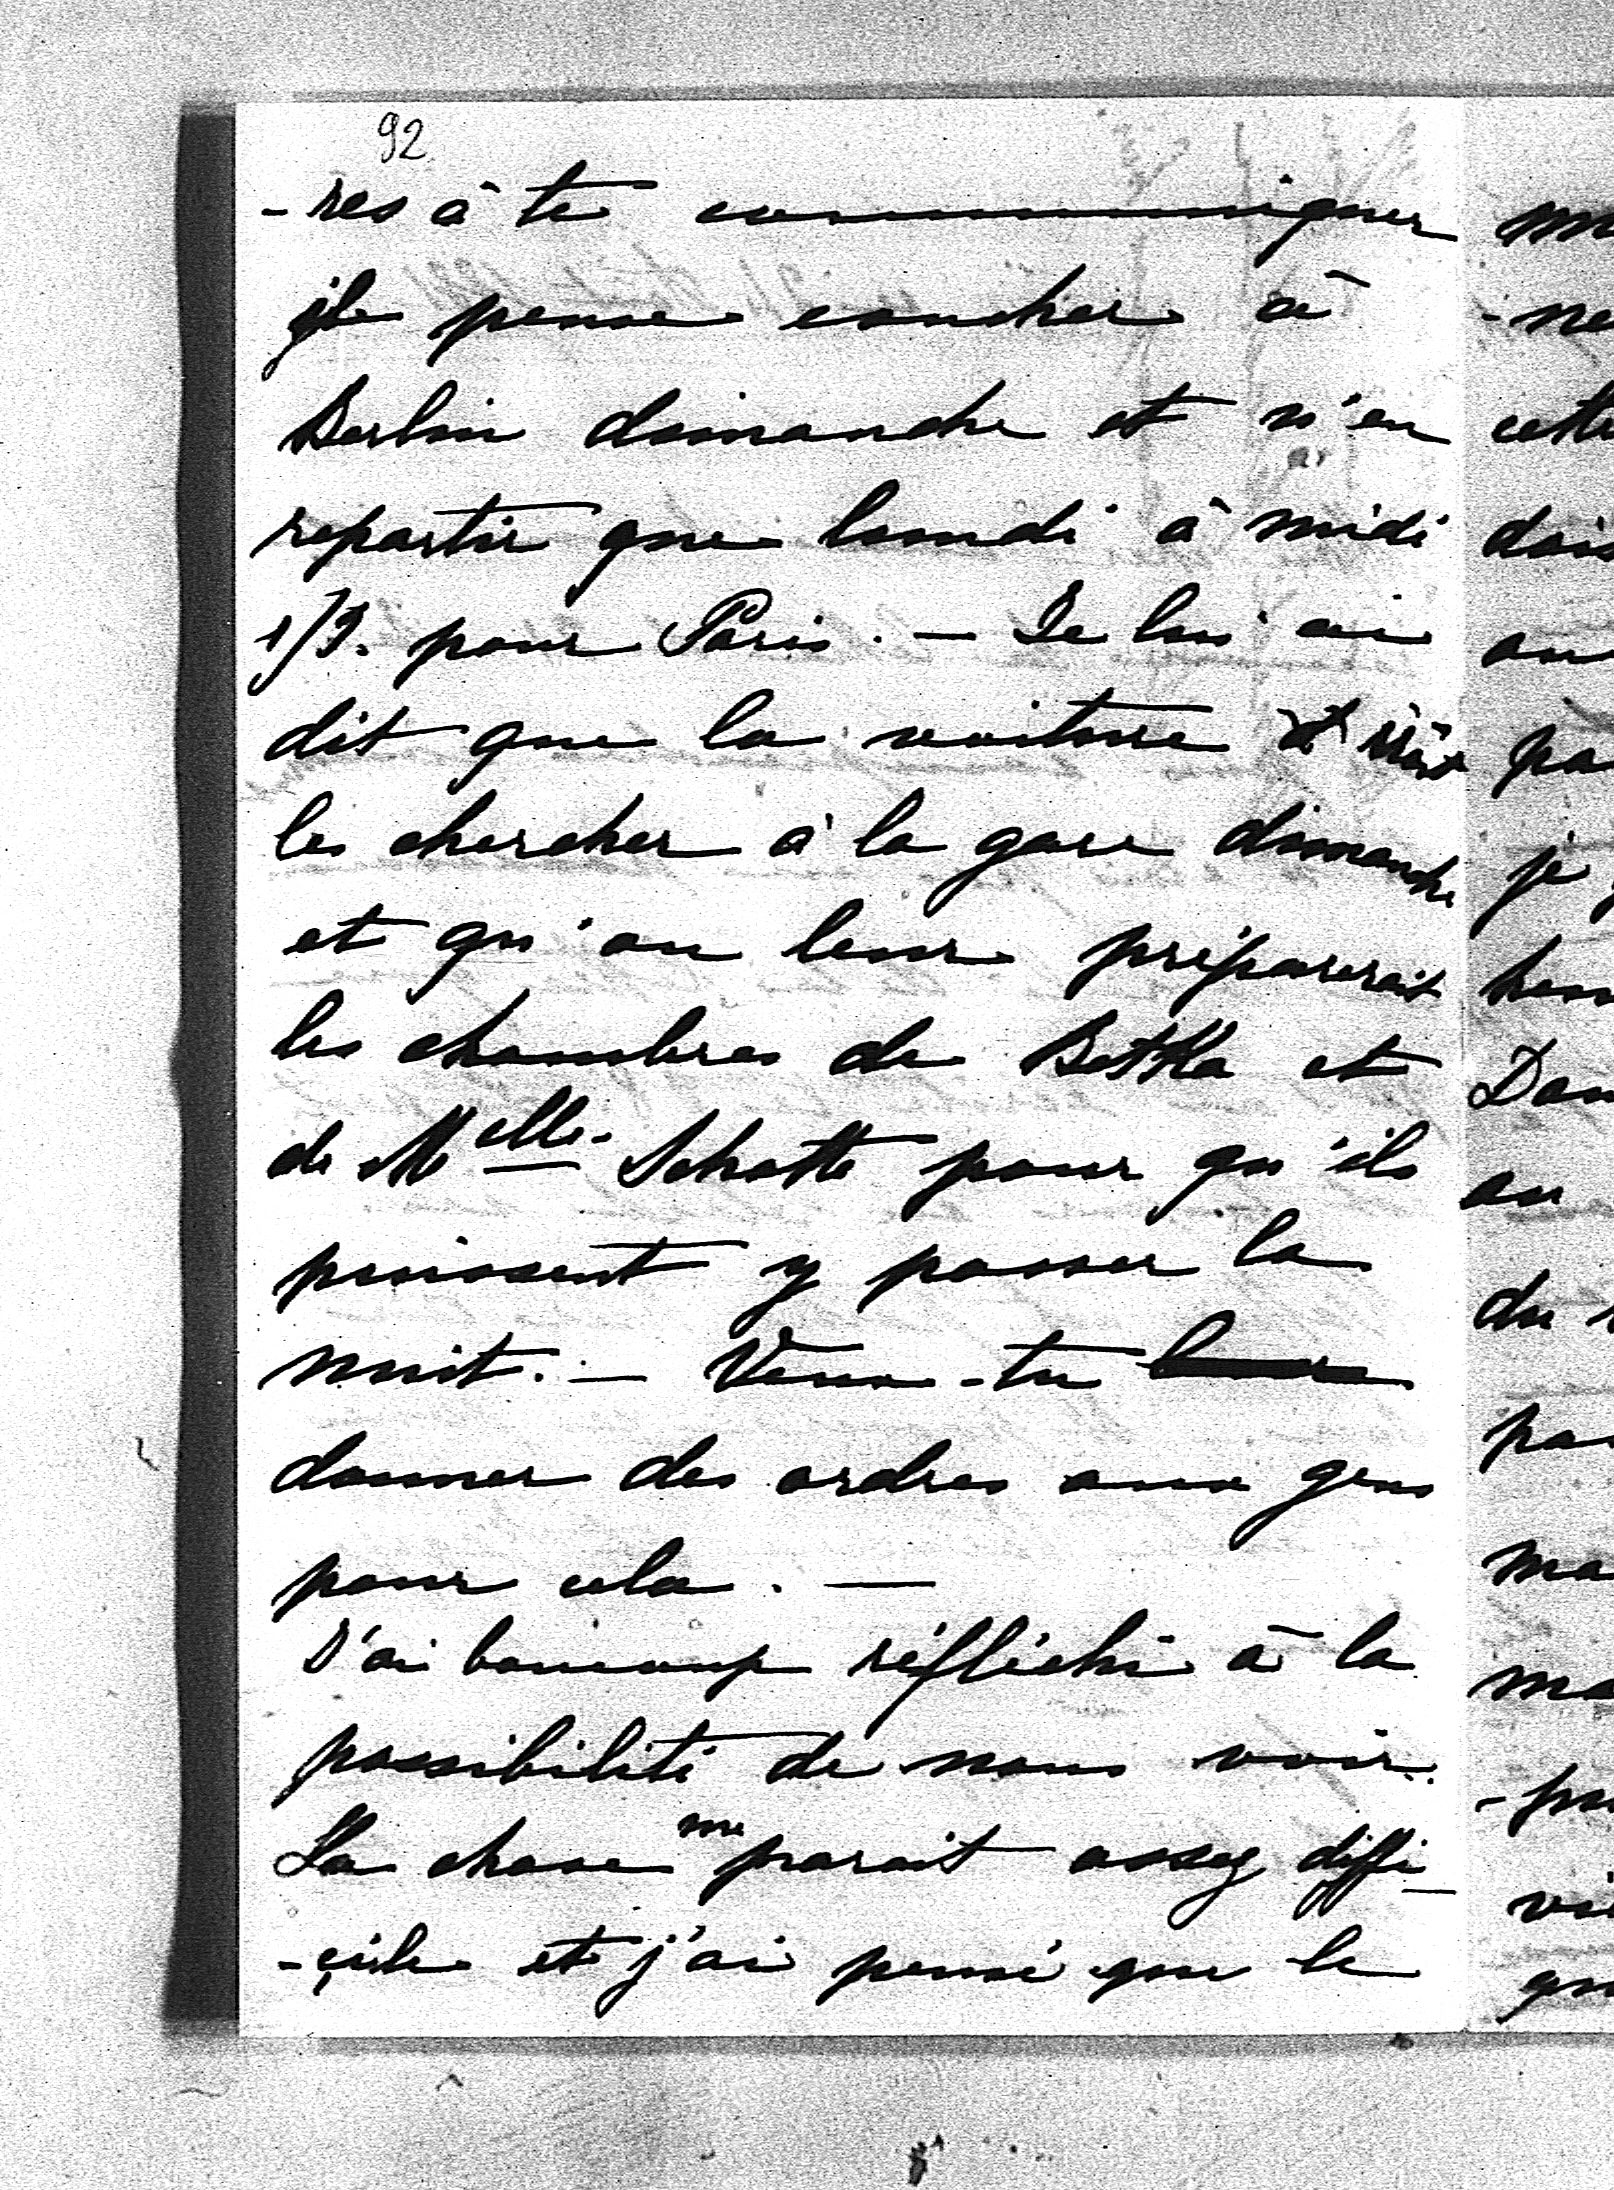 92
-res à te communiquer
il pense coucher à
Berlin dimanche et n'en
repartir que lundi à midi
1/2. pour Paris. — Je lui ai
dit que la voiture irait
les chercher à la gare dimanche
et qu'on leur préparerait
les chambres de Betka et
de Melle. Schotte pour qu'ils
puissent y passer la
nuit. — Veux-tu
donner des ordres aux gens
pour cela. —
J'ai beaucoup réfléchi à la
possibilité de nous voir.
La chose me parait assez diffi-
-cile et j'ai pensé que le